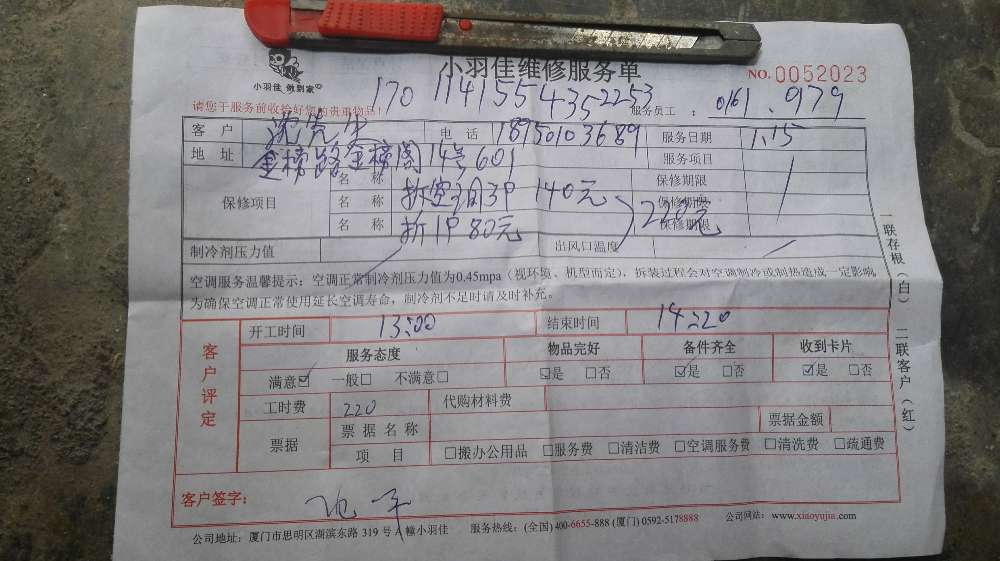 小羽佳维修服务单
小羽佳 做到家
NO.0052023
请您于服务前收拾好您的贵重物品!
170 1141554352253
服务员工: 0161.979
客户 电话 18950103689 服务日期 1.15
地址 金榜路金榜阁14号601 服务项目
保修项目
名称 保修期限
名称 拆空调3P 140元 保修期限
名称 拆1P 80元 保修期限
220元
制冷剂压力值 出风口温度
空调服务温馨提示:空调正常制冷剂压力值为0.45mpa(视环境、机型而定),拆装过程会对空调制冷或制热造成一定影响
为确保空调正常使用延长空调寿命,制冷剂不足时请及时补充。
客户评定
开工时间 13:00 结束时间 14:20
服务态度 物品完好 备件齐全 收到卡片
满意☑ 一般□ 不满意□ ☑是 □否 ☑是 □否 ☑是 □否
工时费 220 代购材料费
票据 票据名称 票据金额
项目 □搬办公用品 □服务费 □清洁费 □空调服务费 □清洗费 □疏通费
客户签字:
公司地址:厦门市思明区湖滨东路 319 号 A 幢小羽佳 服务热线:(全国) 400-6655-888 (厦门) 0592-5178888 公司网站:www.xiaoyujia.com
一联存根(白) 二联客户(红)